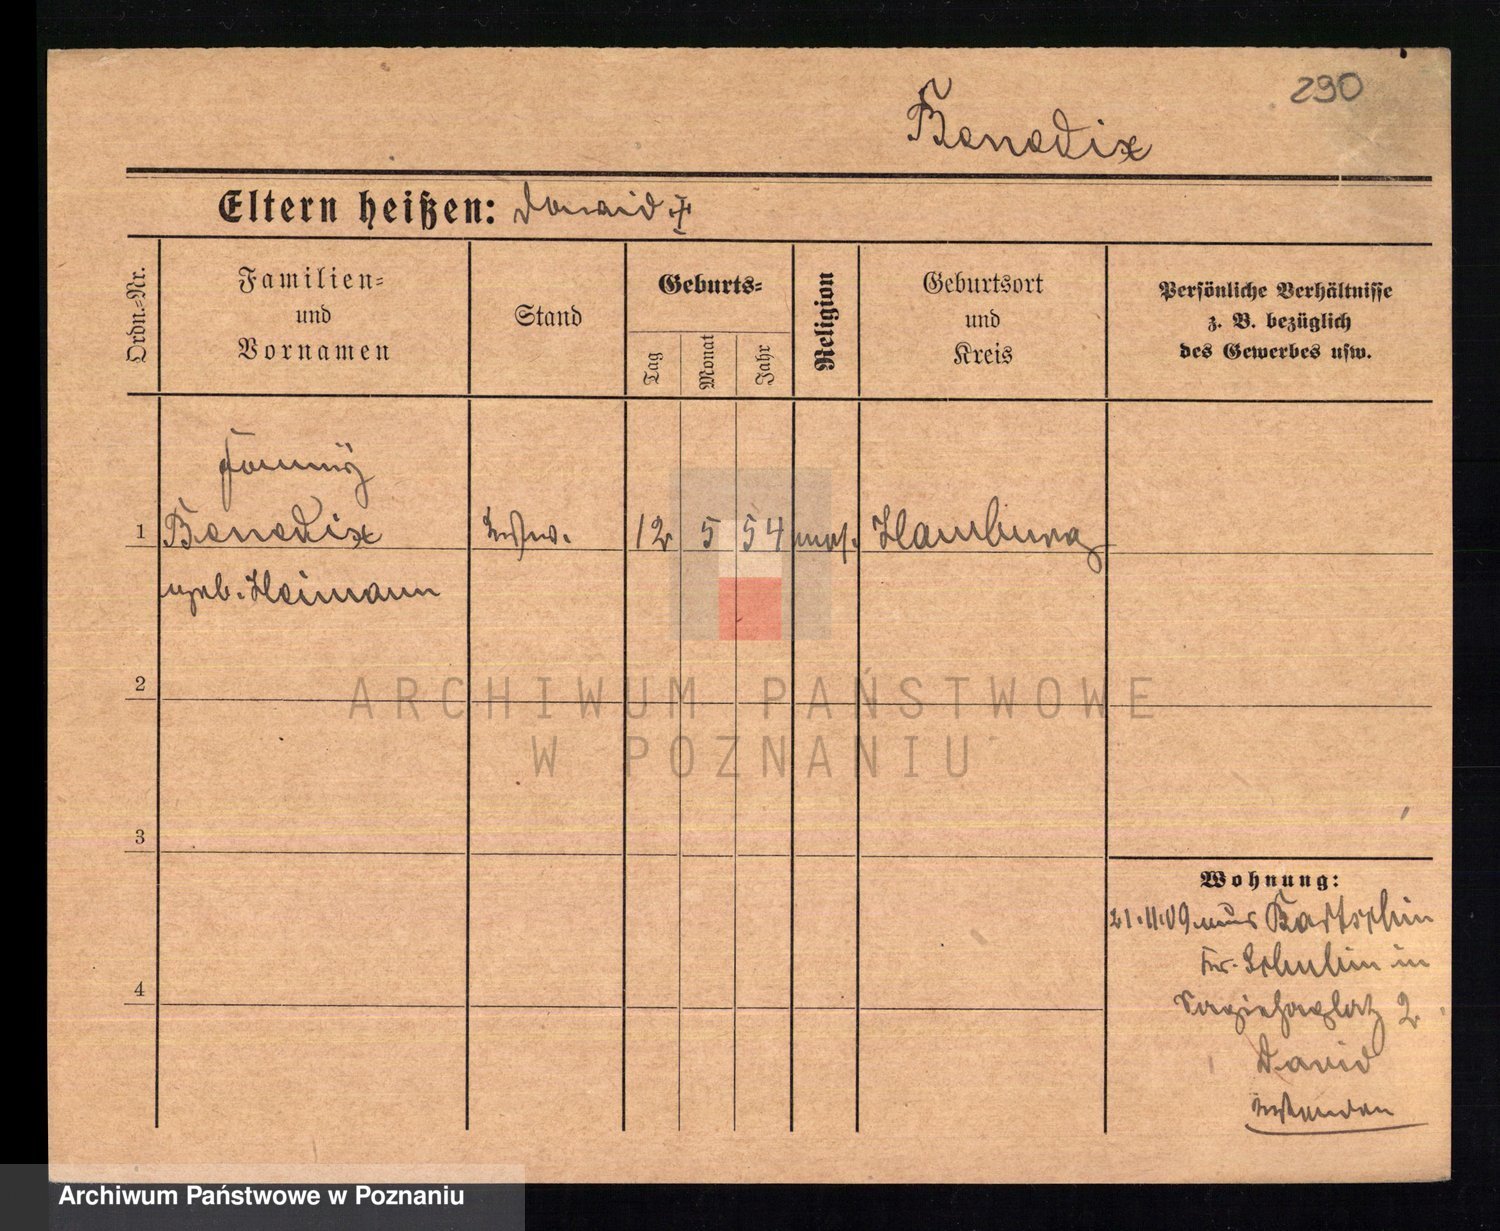 290
Benedix
Eltern heißen: David †
Ordn.-Nr.
Familien-
und
Vornamen
Stand
Geburts-
Tag
Monat
Jahr
Religion
Geburtsort
und
Kreis
Persönliche Verhältnisse
z. B. bezüglich
des Gewerbes usw.
Fanny
1 Benedix 12 5 54 mos. Hamburg
geb. Heimann
2
ARCHIWUM PAŃSTWOWE
W POZNANIU
3
Wohnung:
21.11.09 aus Bartschin
Kr. Schubin in
4
Sapiehaplatz 2
David
Archiwum Państwowe w Poznaniu